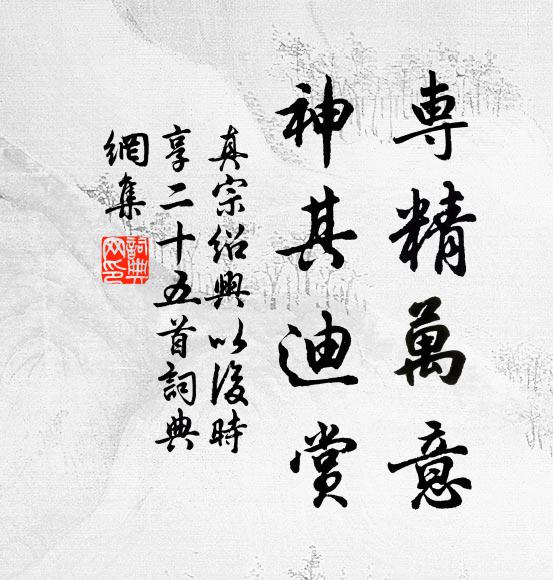 専精萬意
神其迪賞
真宗紹興以後時
享二十五首詞典
網集
詞典
网印